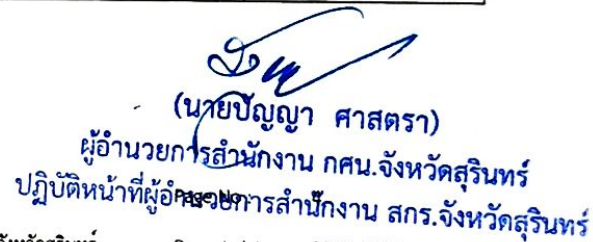 (นายปัญญา ศาสตรา)
ผู้อำนวยการสำนักงาน กศน.จังหวัดสุรินทร์
ปฏิบัติหน้าที่ผู้อำนวยการสำนักงาน สกร.จังหวัดสุรินทร์
Page No.
จังหวัดสุรินทร์